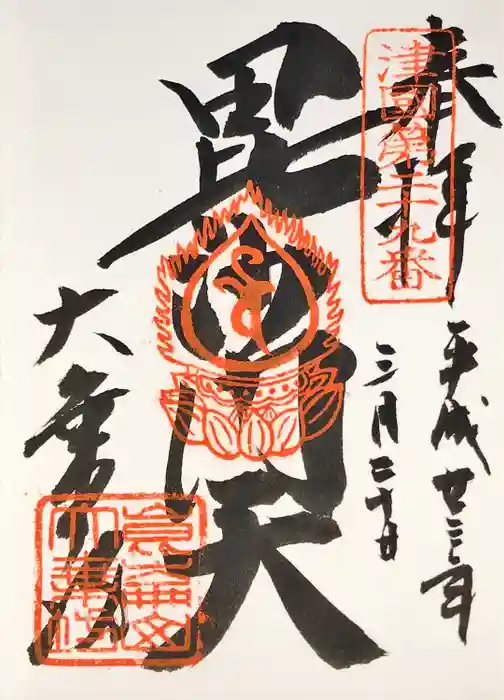 奉拝
津國第二十九番
平成廿三年
三月二十日
毘沙門天
大乗坊